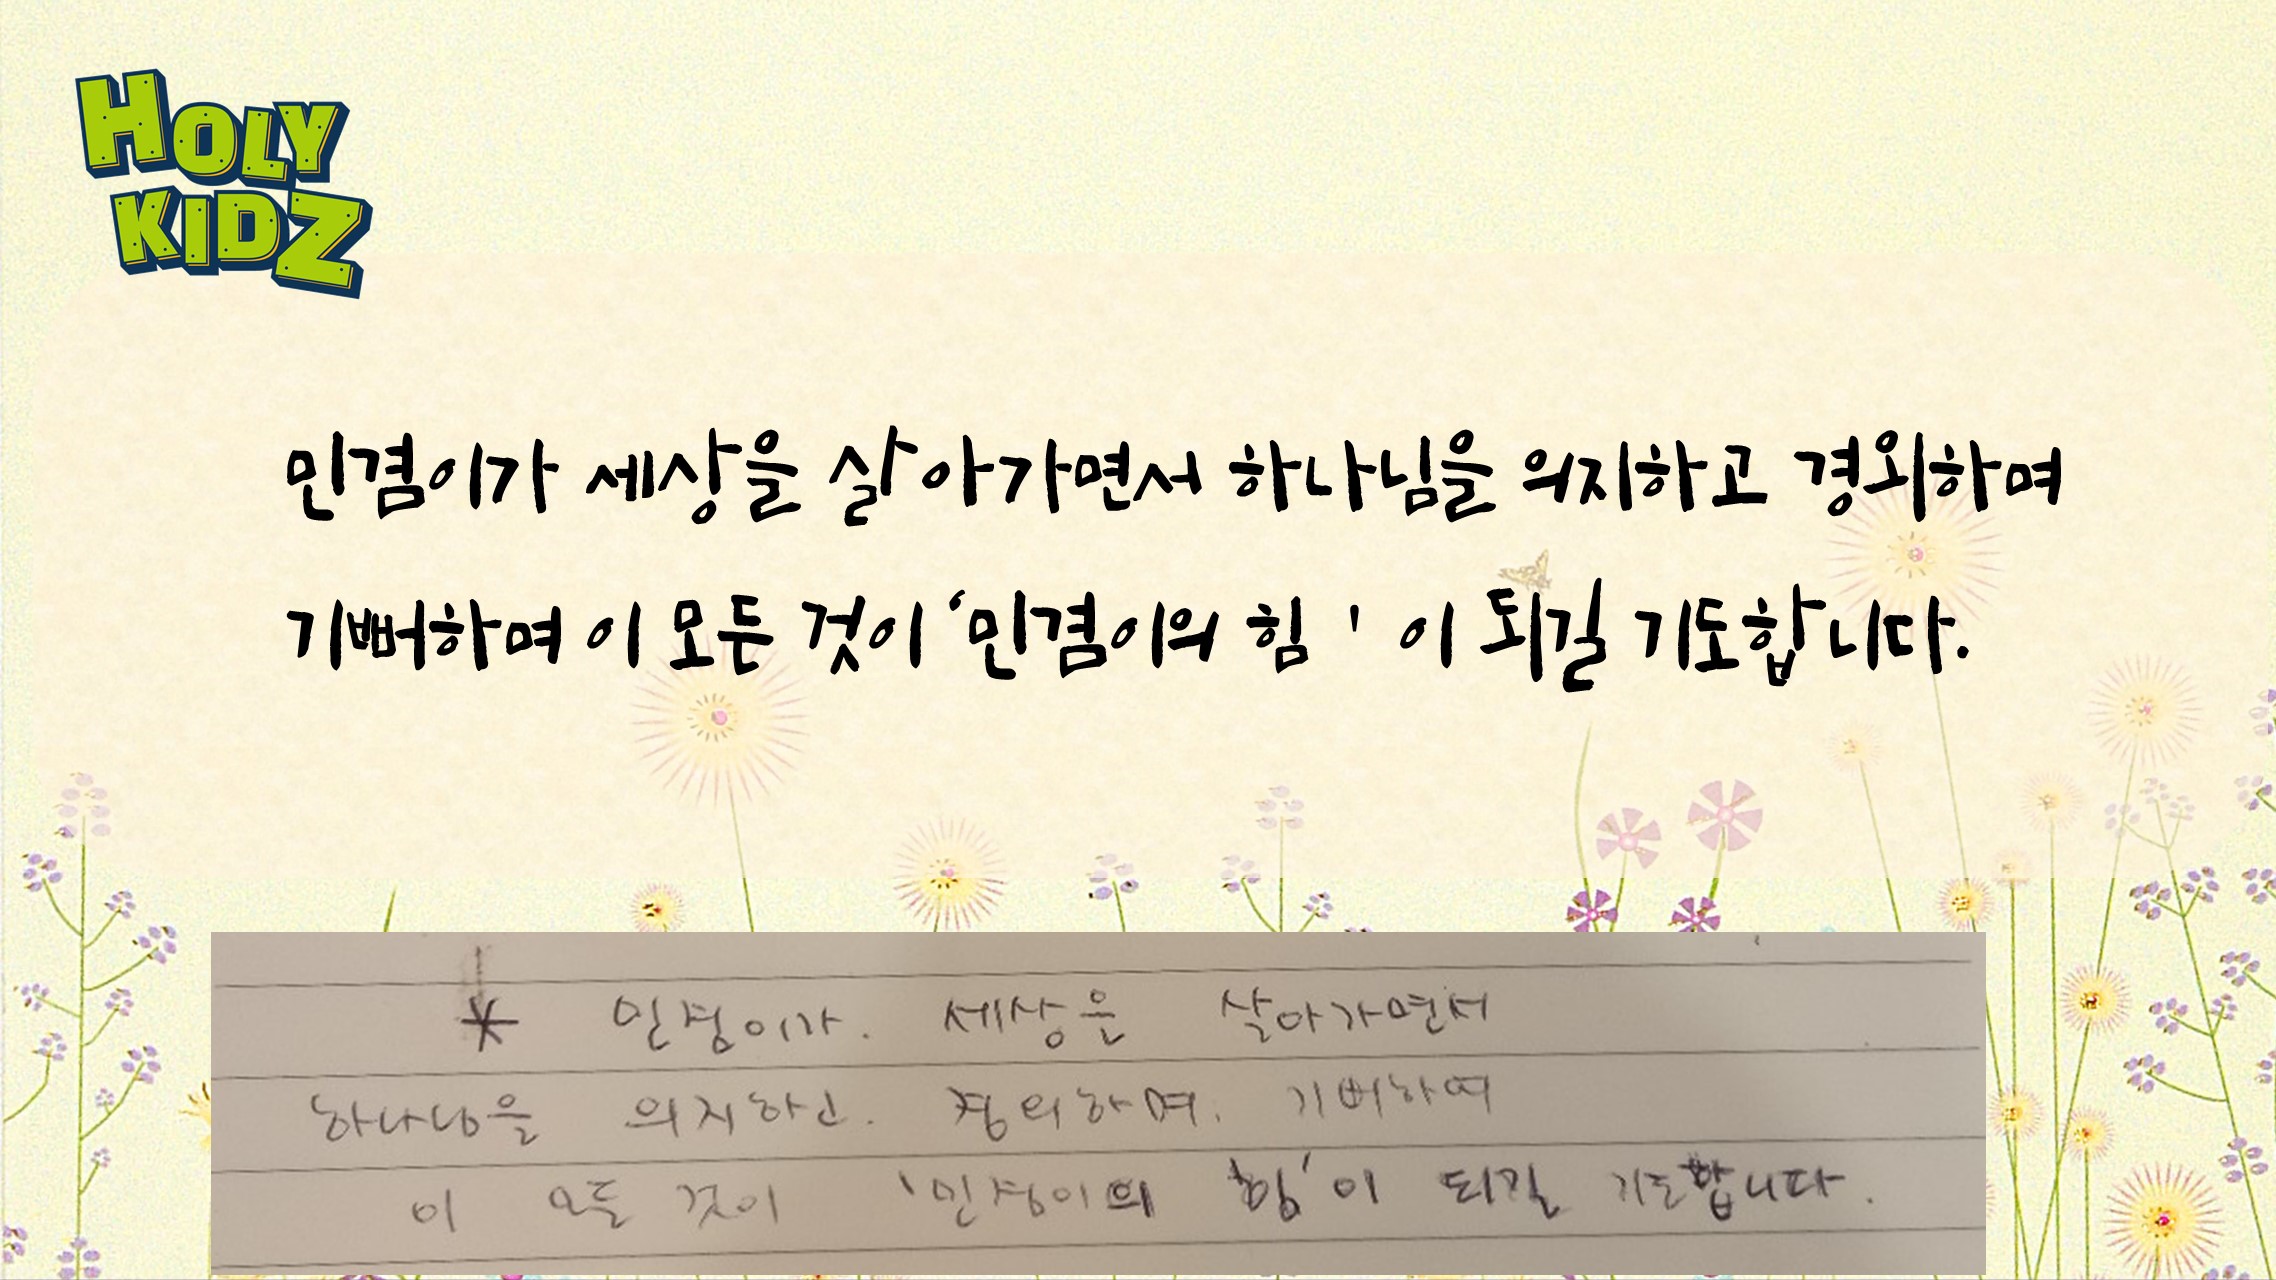 HOLY
KIDZ
민겸이가 세상을 살아가면서 하나님을 의지하고 경외하며
기뻐하며 이 모든 것이 ‘민겸이의 힘 ' 이 되길 기도합니다.
* 민겸이가. 세상을 살아가면서
하나님을 의지하고. 경외하며. 기뻐하며
이 모든 것이 '민겸이의 힘'이 되길 기도합니다.